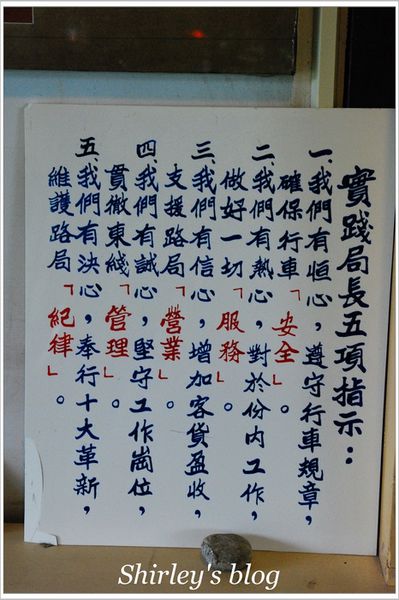 實踐局長五項指示：
一、我們有恒心，遵守行車規章，
確保行車「安全」。
二、我們有熱心，對於份內工作，
做好一切「服務」。
三、我們有信心，增加客貨盈收，
支援路局「營業」。
四、我們有誠心，堅守工作崗位，
貫徹東綫「管理」。
五、我們有決心，奉行十大革新，
維護路局「紀律」。
Shirley's blog